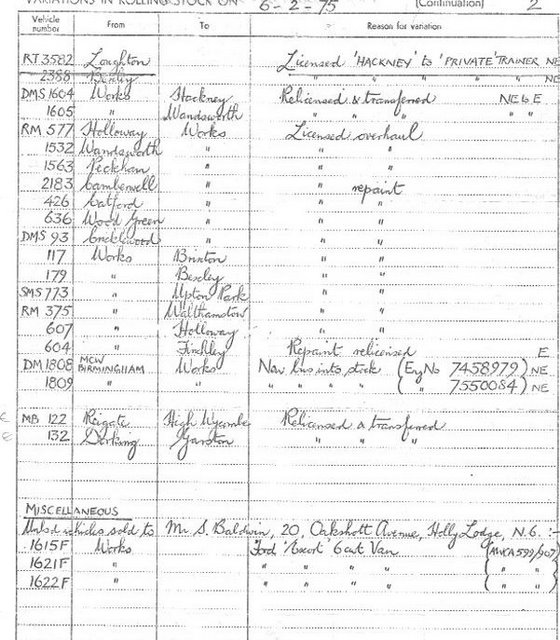 VARIATIONS IN ROLLING STOCK ON 6-2-75 (Continuation) 2
Vehicle number From To Reason for variation
RT 3582 Loughton Licensed 'HACKNEY' to 'PRIVATE' TRAINER NE
2388 Bexley " " " " " NE
DMS 1604 Works Hackney Relicensed & transferred NE to E
1605 " Wandsworth " " " " "
RM 577 Holloway Works Licensed overhaul
1532 Wandsworth " " "
1563 Peckham " " "
2183 Camberwell " " repaint
426 Catford " " "
636 Wood Green " " "
DMS 93 Cricklewood " " "
117 Works Brixton " "
179 " Bexley " "
SMS 773 " Upton Park " "
RM 375 " Walthamstow " "
607 " Holloway " "
604 " Finchley Repaint relicensed E
DM 1808 MCW BIRMINGHAM Works New bus into stock (Eng No 7458979) NE
1809 " " " " " " ( " 7550084) NE
MB 122 Reigate High Wycombe Relicensed & transferred
132 Dorking Garston " " "
MISCELLANEOUS
Unlsd vehicles sold to Mr S. Baldwin, 20, Oakshott Avenue, Holly Lodge, N.6. :-
1615F Works Ford 'Escort' 6cwt Van
1621F " " " " " " "
1622F " " " " " " "